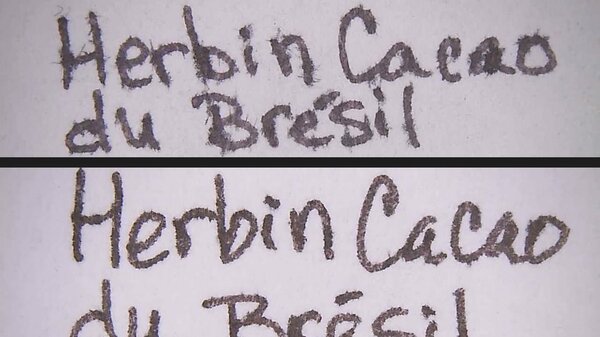 Herbin Cacao
du Brésil
Herbin Cacao
du Brésil